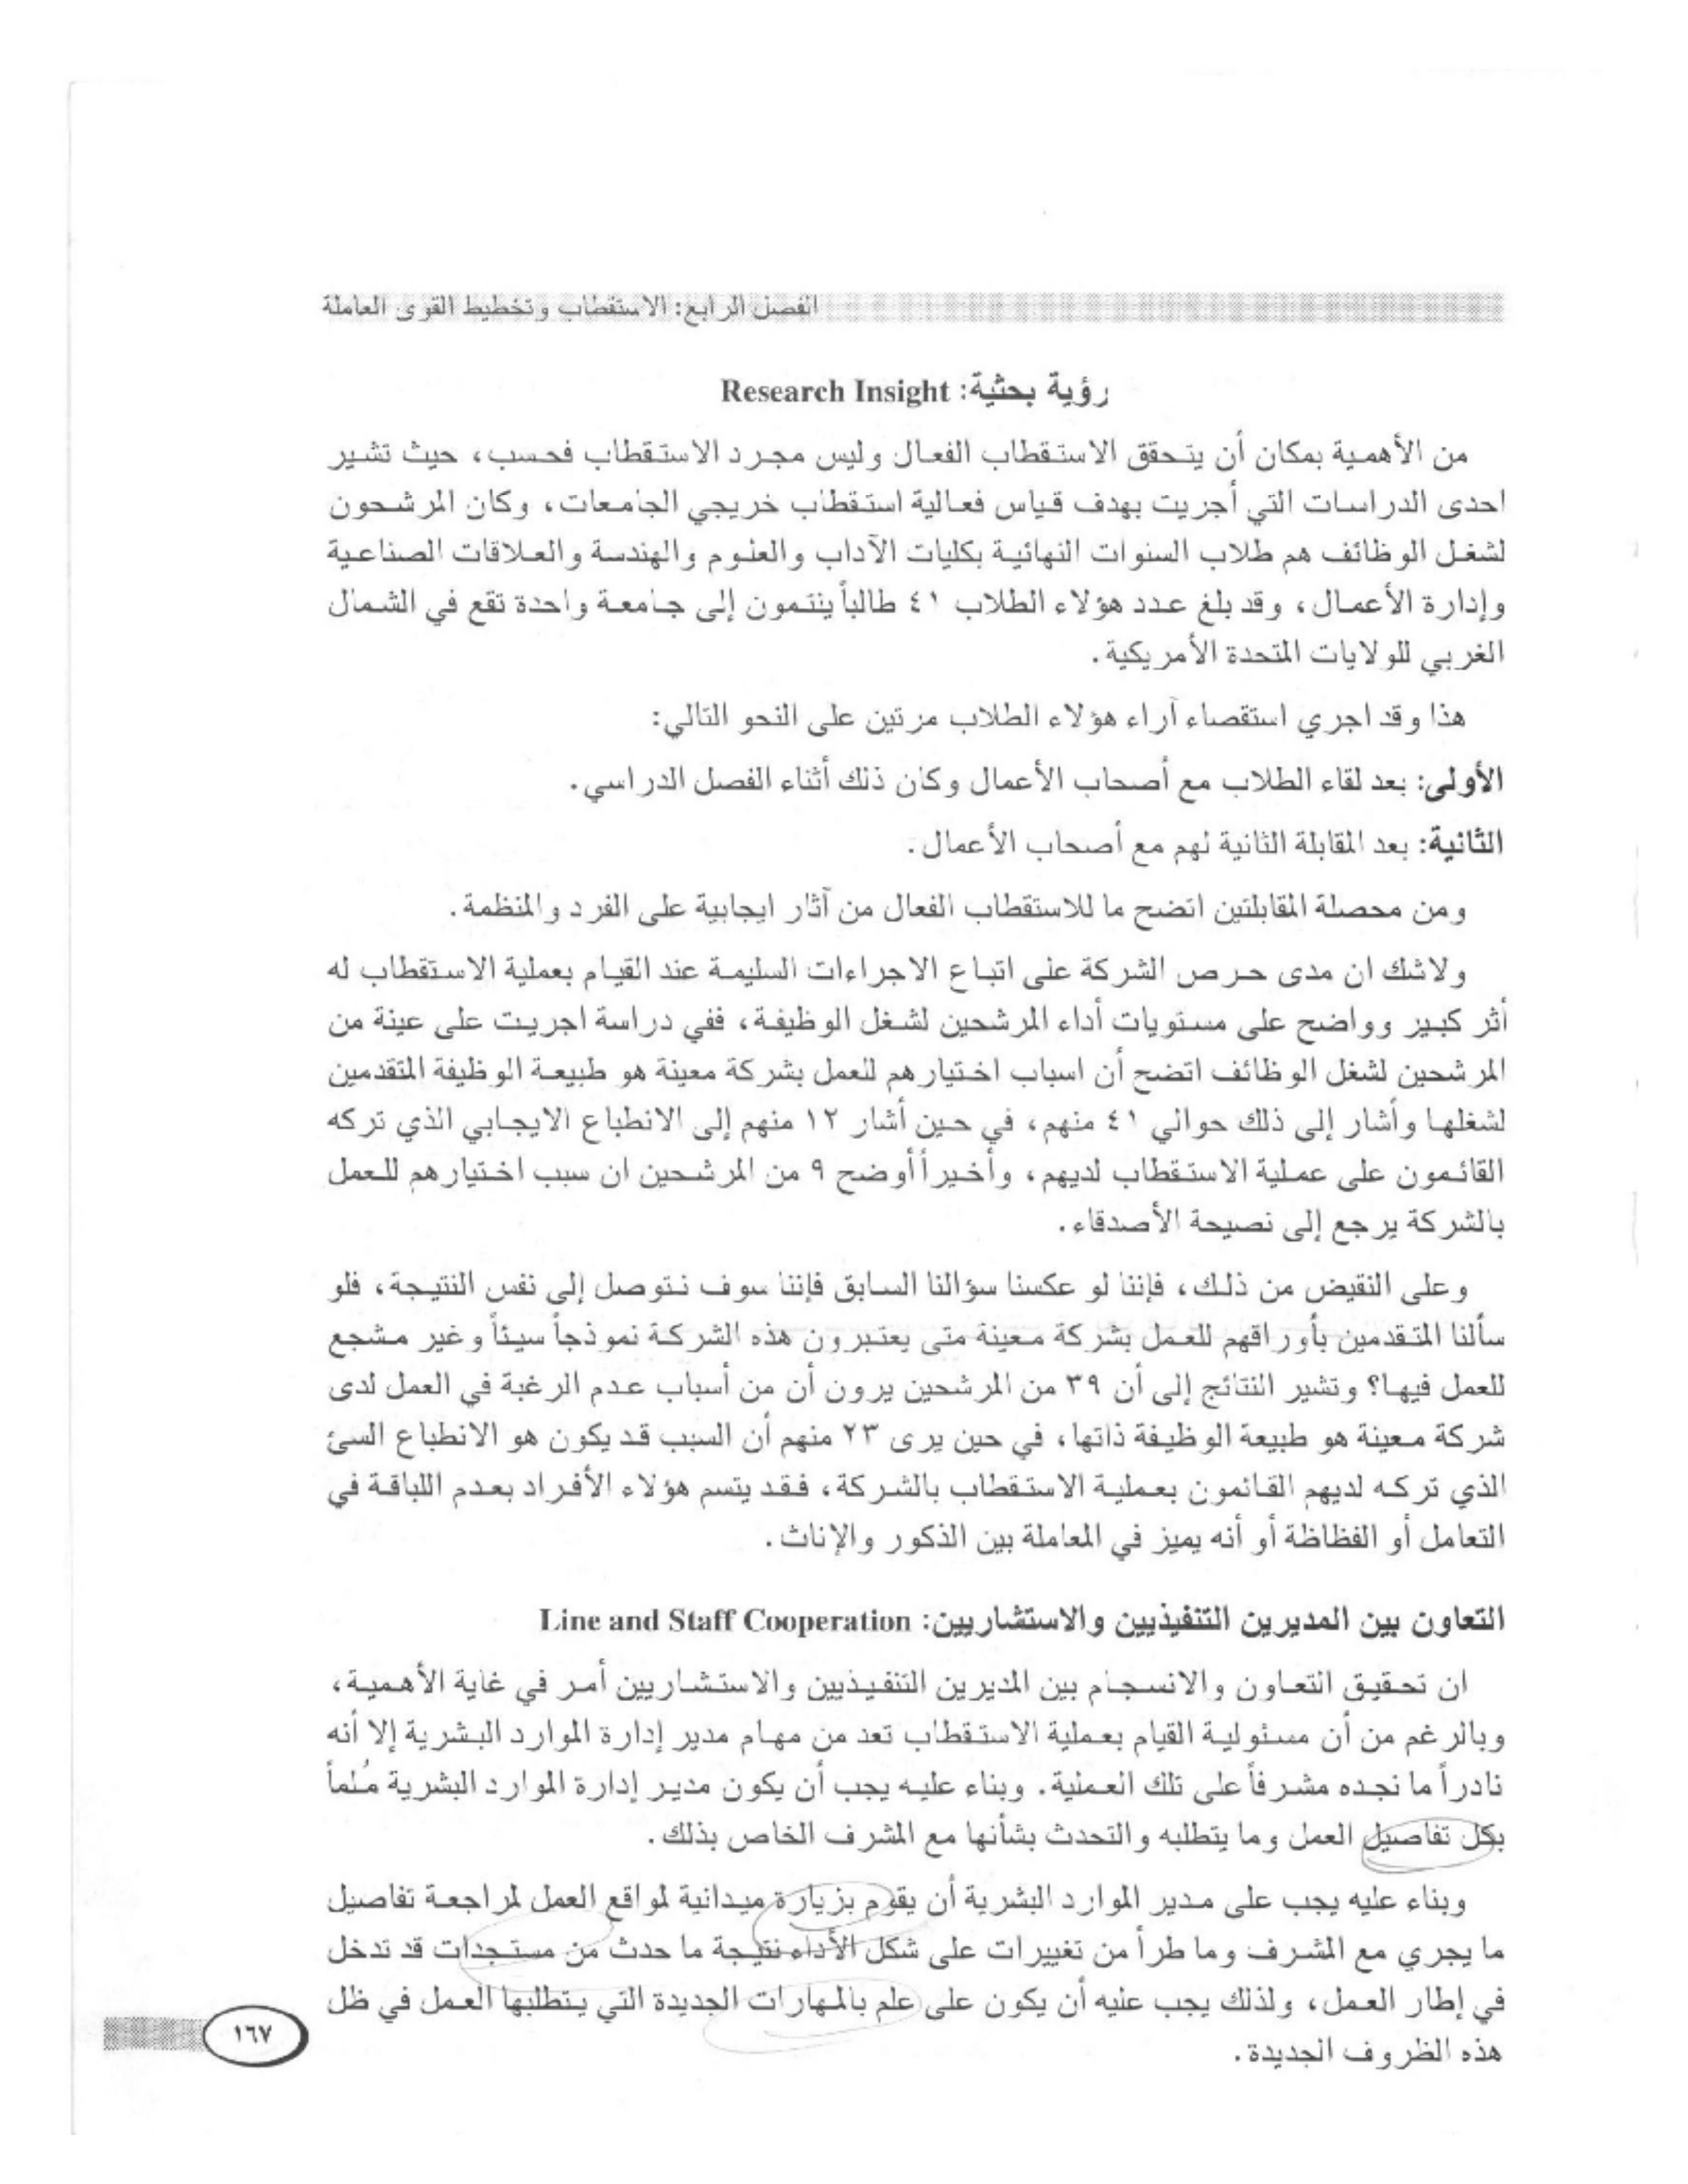 الفصل الرابع: الاستقطاب وتخطيط القوى العاملة
رؤية بحثية: Research Insight
من الأهمية بمكان أن يتحقق الاستقطاب الفعال وليس مجرد الاستقطاب فحسب، حيث تشير
احدى الدراسات التي أجريت بهدف قياس فعالية استقطاب خريجي الجامعات، وكان المرشحون
لشغل الوظائف هم طلاب السنوات النهائية بكليات الآداب والعلوم والهندسة والعلاقات الصناعية
وإدارة الأعمال، وقد بلغ عدد هؤلاء الطلاب ٤١ طالباً ينتمون إلى جامعة واحدة تقع في الشمال
الغربي للولايات المتحدة الأمريكية.
هذا وقد اجري استقصاء آراء هؤلاء الطلاب مرتين على النحو التالي:
الأولى: بعد لقاء الطلاب مع أصحاب الأعمال وكان ذلك أثناء الفصل الدراسي.
الثانية: بعد المقابلة الثانية لهم مع أصحاب الأعمال.
ومن محصلة المقابلتين اتضح ما للاستقطاب الفعال من آثار ايجابية على الفرد والمنظمة.
ولاشك ان مدى حرص الشركة على اتباع الاجراءات السليمة عند القيام بعملية الاستقطاب له
أثر كبير وواضح على مستويات أداء المرشحين لشغل الوظيفة، ففي دراسة اجريت على عينة من
المرشحين لشغل الوظائف اتضح أن اسباب اختيارهم للعمل بشركة معينة هو طبيعة الوظيفة المتقدمين
لشغلها وأشار إلى ذلك حوالي ٤١ منهم، في حين أشار ١٢ منهم إلى الانطباع الايجابي الذي تركه
القائمون على عملية الاستقطاب لديهم، وأخيراً أوضح ٩ من المرشحين ان سبب اختيارهم للعمل
بالشركة يرجع إلى نصيحة الأصدقاء.
وعلى النقيض من ذلك، فإننا لو عكسنا سؤالنا السابق فإننا سوف نتوصل إلى نفس النتيجة، فلو
سألنا المتقدمين بأوراقهم للعمل بشركة معينة متى يعتبرون هذه الشركة نموذجاً سيئاً وغير مشجع
للعمل فيها؟ وتشير النتائج إلى أن ٣٩ من المرشحين يرون أن من أسباب عدم الرغبة في العمل لدى
شركة معينة هو طبيعة الوظيفة ذاتها، في حين يرى ٢٣ منهم أن السبب قد يكون هو الانطباع السئ
الذي تركه لديهم القائمون بعملية الاستقطاب بالشركة، فقد يتسم هؤلاء الأفراد بعدم اللباقة في
التعامل أو الفظاظة أو أنه يميز في المعاملة بين الذكور والإناث.
التعاون بين المديرين التنفيذيين والاستشاريين: Line and Staff Cooperation
ان تحقيق التعاون والانسجام بين المديرين التنفيذيين والاستشاريين أمر في غاية الأهمية،
وبالرغم من أن مسئولية القيام بعملية الاستقطاب تعد من مهام مدير إدارة الموارد البشرية إلا أنه
نادراً ما نجده مشرفاً على تلك العملية. وبناء عليه يجب أن يكون مدير إدارة الموارد البشرية مُلماً
بكل تفاصيل العمل وما يتطلبه والتحدث بشأنها مع المشرف الخاص بذلك.
وبناء عليه يجب على مدير الموارد البشرية أن يقوم بزيارة ميدانية لمواقع العمل لمراجعة تفاصيل
ما يجري مع المشرف وما طرأ من تغييرات على شكل الأداء نتيجة ما حدث من مستجدات قد تدخل
في إطار العمل، ولذلك يجب عليه أن يكون على علم بالمهارات الجديدة التي يتطلبها العمل في ظل
هذه الظروف الجديدة.
١٦٧